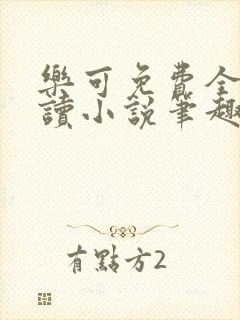 樂可免費全
讀小說筆趣
有點方2